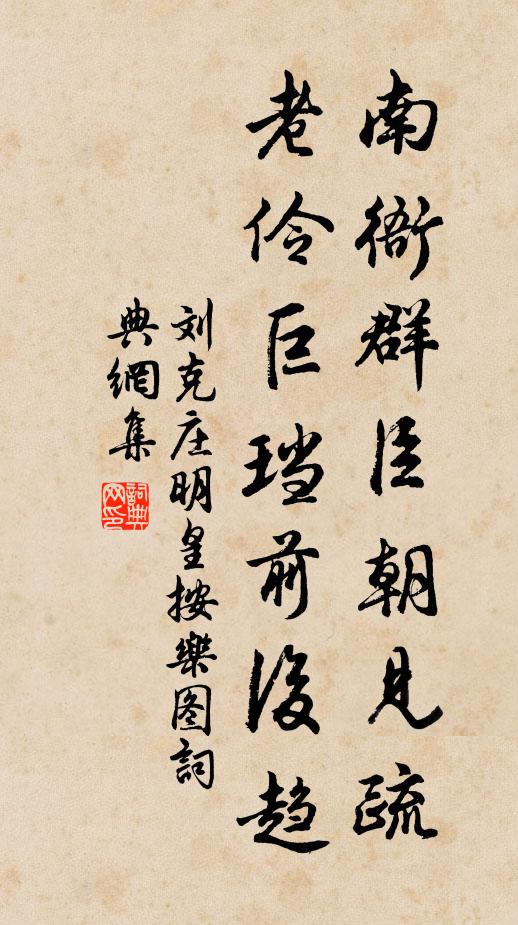 南衙群臣朝見疏
老伶巨璫前後趨
刘克庄明皇按樂图詞
典網集
詞典
网印